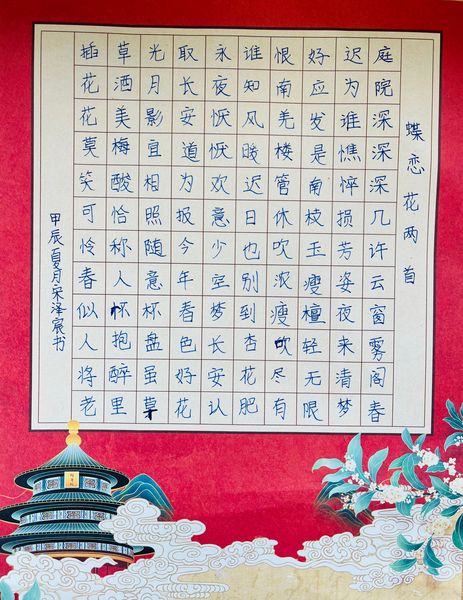 蝶恋花两首
庭院深深深几许云窗雾阁春
迟为谁憔悴损芳姿夜来清梦
好应发是南枝玉瘦檀轻无限
恨南羌楼管休吹浓瘦吹尽有
谁知风暖迟日也别到杏花肥
永夜恹恹欢意少空梦长安认
取长安道为报今年春色好花
光月影宜相照随意杯盘虽草
草洒美梅酸恰称人怀抱醉里
插花花莫笑可怜春似人将老
甲辰夏月宋泽宸书